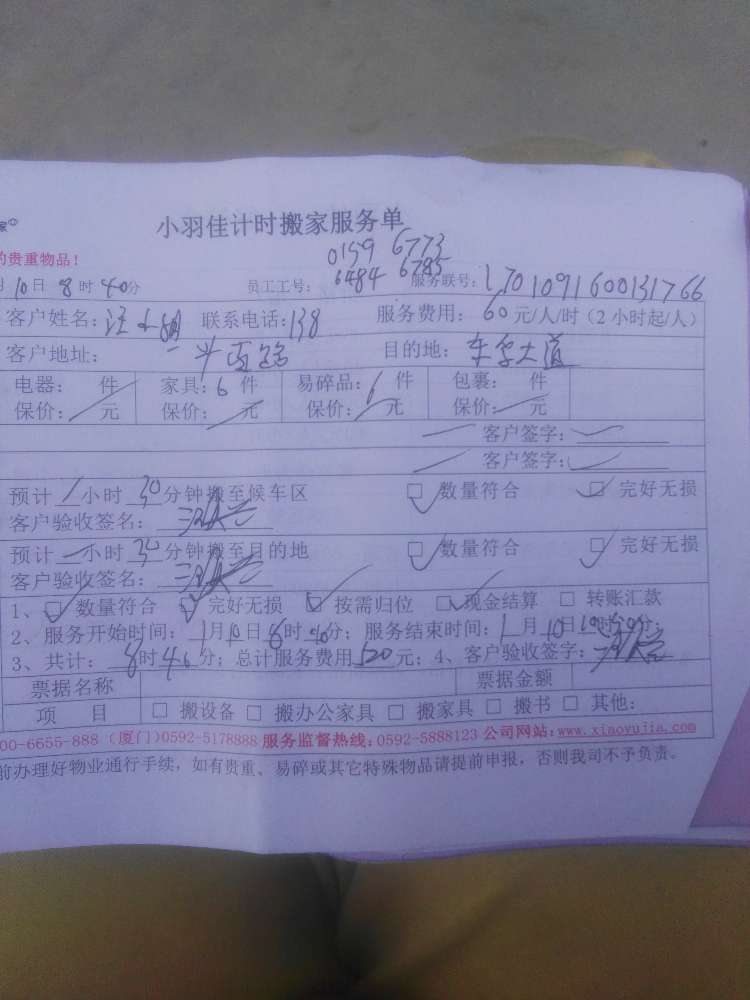 家
小羽佳计时搬家服务单
的贵重物品!
0159 6773
月10日8时40分 员工工号: 6484 6785 服务联号: 1701091600131766
客户姓名: 联系电话:138 服务费用: 60元/人/时(2小时起/人)
客户地址: 目的地: 大道
电器: 件 家具:6件 易碎品:6件 包裹: 件
保价: 元 保价: 元 保价: 元 保价: 元
客户签字:
客户签字:
预计 小时30分钟搬至候车区 数量符合 完好无损
客户验收签名:
预计 小时30分钟搬至目的地 数量符合 完好无损
客户验收签名:
1、 数量符合 完好无损 按需归位 现金结算 转账汇款
2、服务开始时间:1月10日8时40分; 服务结束时间:1月10日 分;
3、共计:8时 分;总计服务费用520元;4、客户验收签字:
票据名称 票据金额
项 目 搬设备 搬办公家具 搬家具 搬书 其他:
00-6655-888 (厦门)0592-5178888 服务监督热线:0592-5888123 公司网站:www.xiaoyujia.com
前办理好物业通行手续,如有贵重、易碎或其它特殊物品请提前申报,否则我司不予负责。